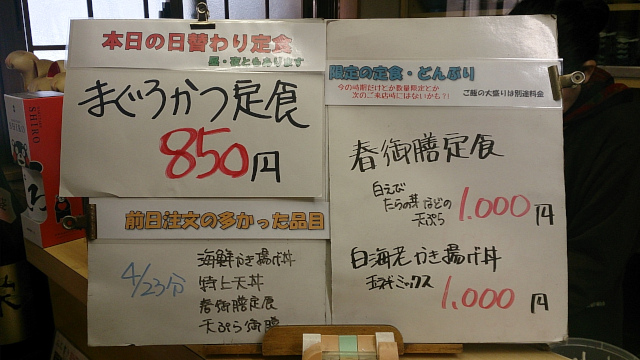 本日の日替わり定食
昼・夜ともあります
まぐろかつ定食
850円
前日注文の多かった品目
4/23分
海鮮かき揚げ丼
特上天丼
春御膳定食
天ぷら御膳
限定の定食・どんぶり
今の時期だけとか数量限定とか
次のご来店時にはないかも?!
ご飯の大盛りは別途料金
春御膳定食
白えび
たらの芽などの
天ぷら
1.000円
白海老かき揚げ丼
玉ネギミックス
1.000円